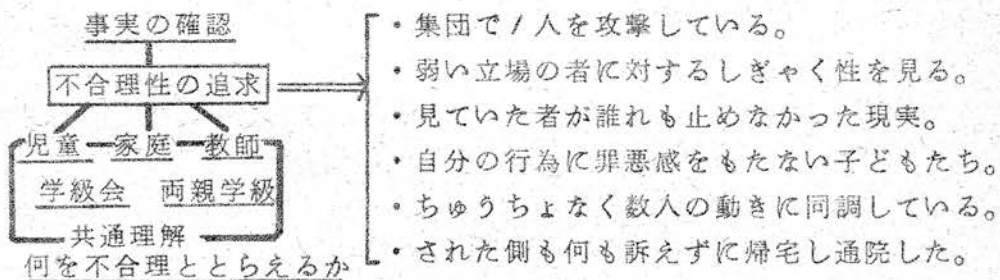 事実の確認
不合理性の追求
児童 家庭 教師
学級会 両親学級
共通理解
何を不合理ととらえるか
・集団で1人を攻撃している。
・弱い立場の者に対するしぎゃく性を見る。
・見ていた者が誰れも止めなかった現実。
・自分の行為に罪悪感をもたない子どもたち。
・ちゅうちょなく数人の動きに同調している。
・された側も何も訴えずに帰宅し通院した。